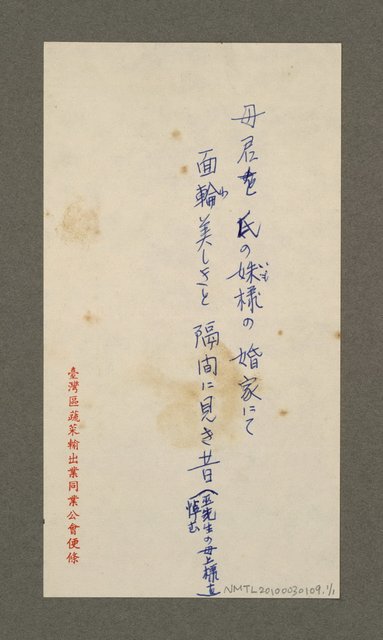 母君を氏の妹様の婚家にて
面輪美しきと隔間に見き昔
悼む
臺灣區蔬菜輸出業同業公會便條
NMTL20100030109.1/1